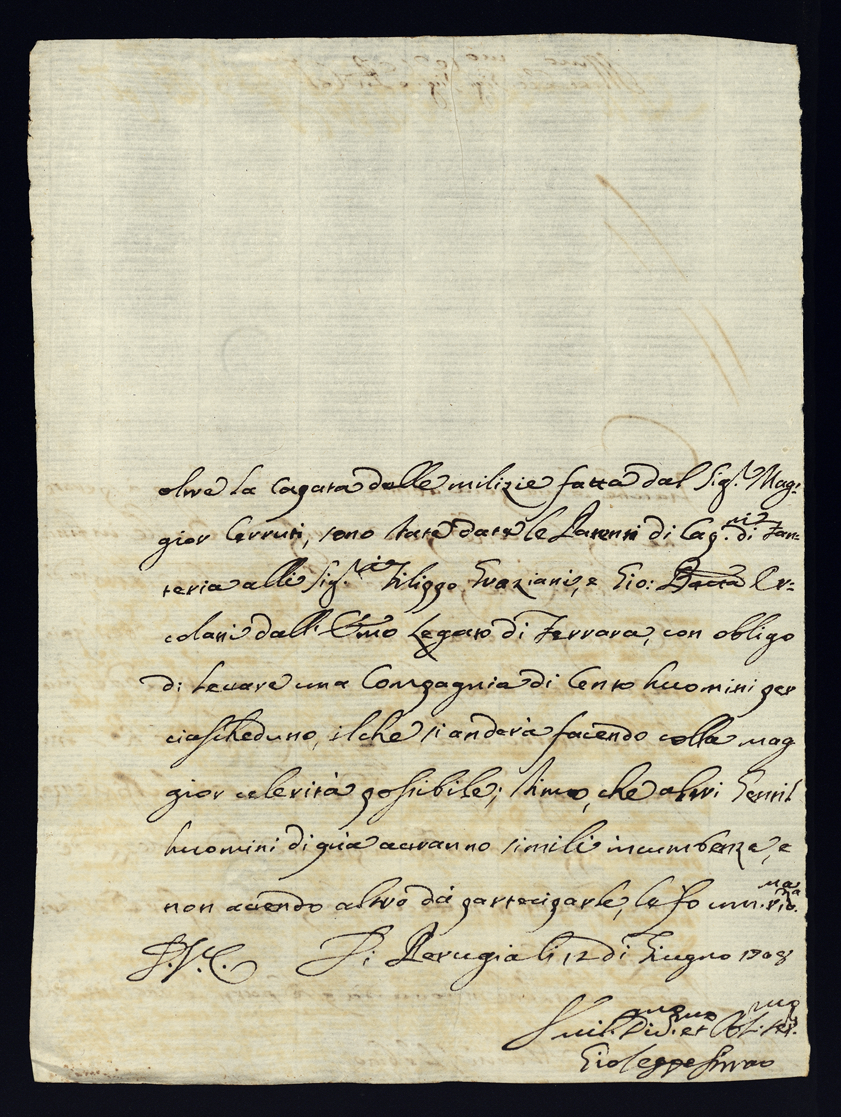 oltre la Capata delle milizie fatta dal Sig.r Mag:
gior Cerruti, sono state date le Patenti di Cap.ni di Fan=
teria alli Sig.ri Filippo Graziani, e Gio: Er=
colani dall' Emo Legato di Ferrara, con obligo
di levare una Compagnia di Cento huomini per
ciascheduno, il che si anderà facendo colla mag
gior celerità possibile; stimo, che altri Gentil
huomini di quà avranno simili incumbenze, e
non avendo altro da parteciparle, le fo um.ma
S.V.C. Di Perugia li 12 di Giugno 1708
Giuseppe